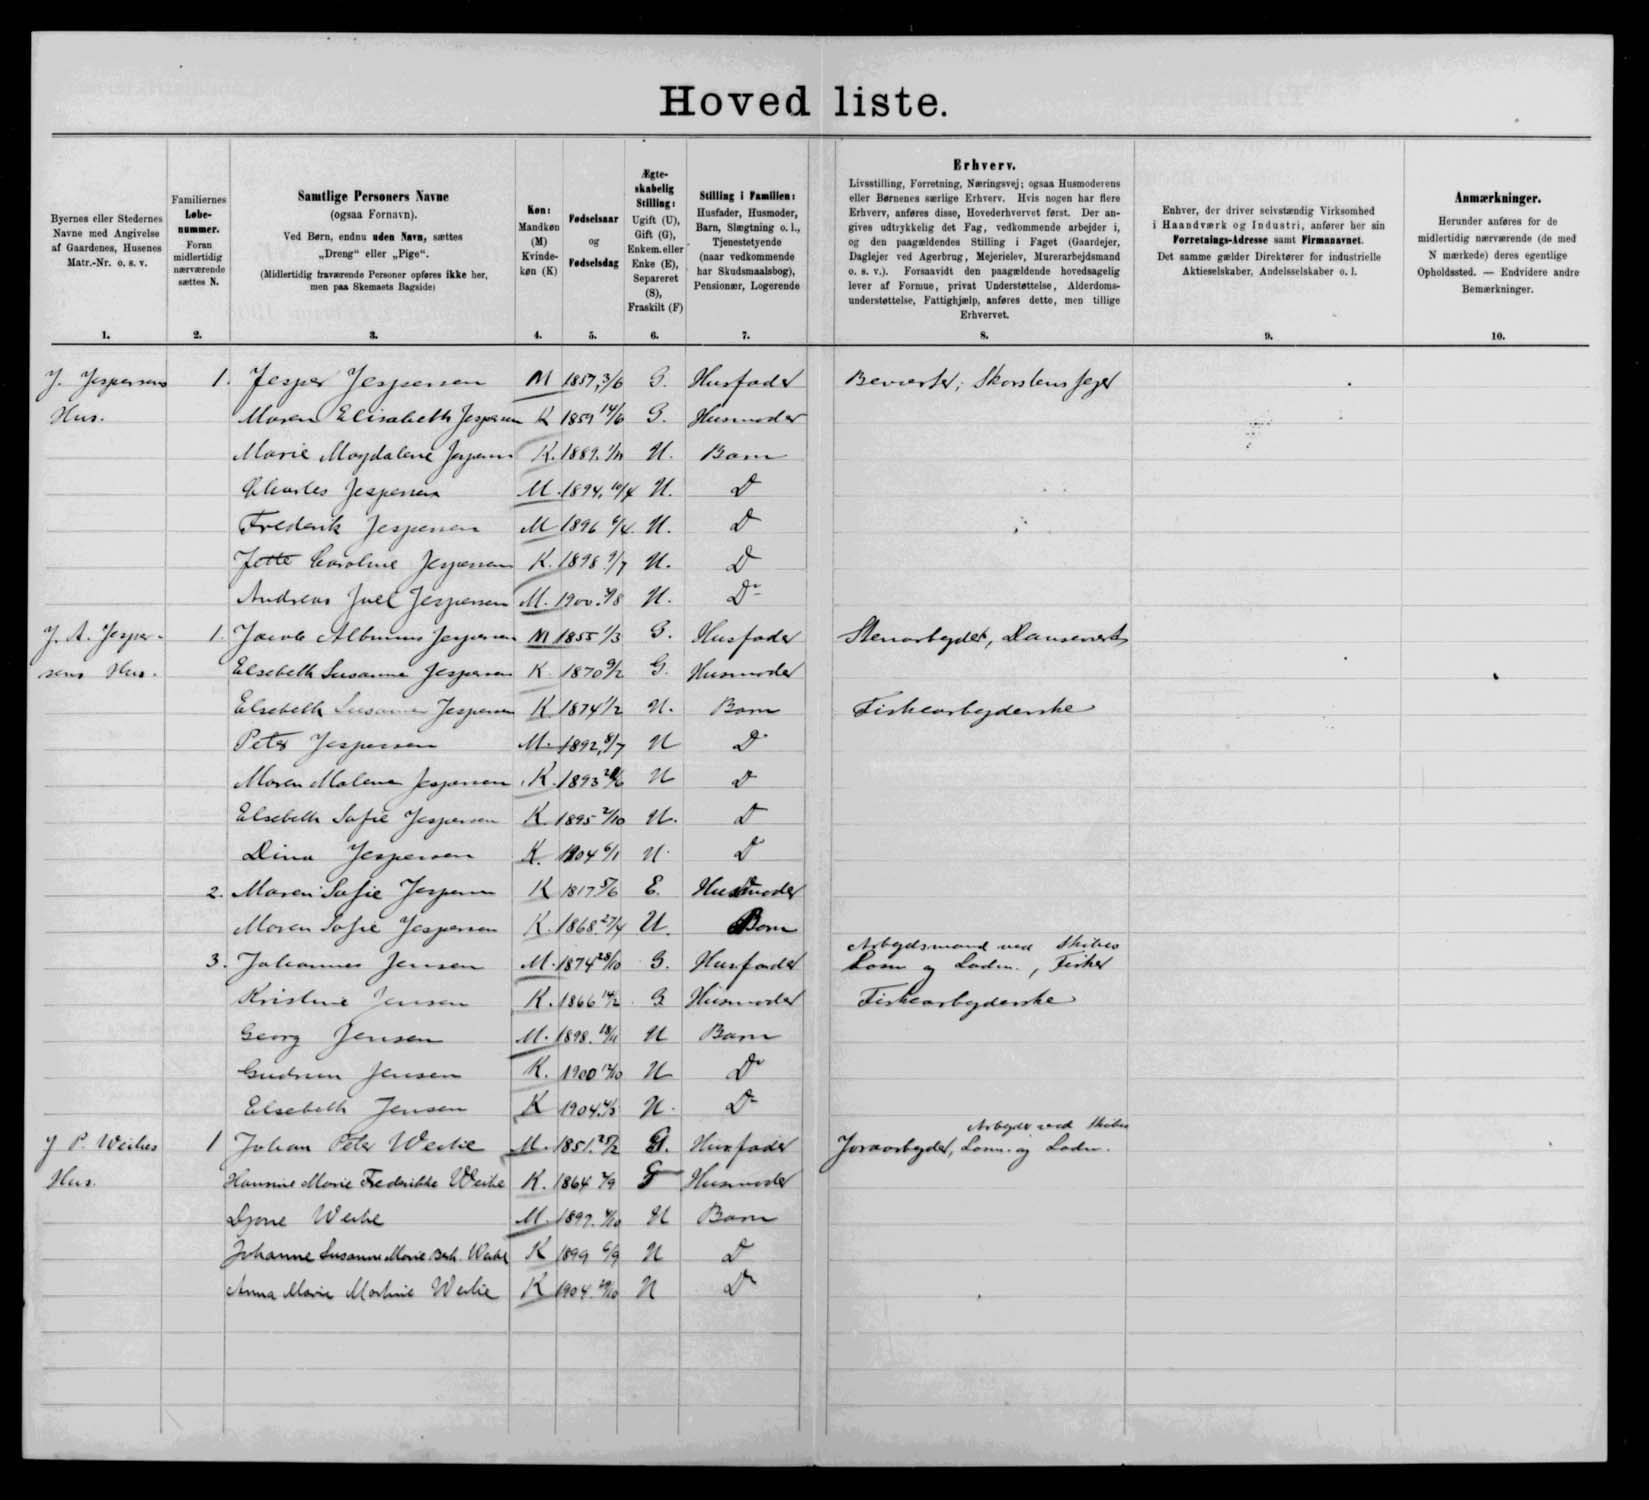 Hovedliste.
Byernes eller Stedernes
Navne med Angivelse
af Gaardenes, Husenes
Matr.-Nr. o. s. v.
1.
Familiernes
Løbe-
nummer.
Foran
midlertidig
nærværende
sættes N.
2.
Samtlige Personers Navne
(ogsaa Fornavn).
Ved Børn, endnu uden Navn, sættes
„Dreng“ eller „Pige“.
(Midlertidig fraværende Personer opføres ikke her,
men paa Skemaets Bagside)
3.
Køn:
Mandkøn
(M)
Kvinde-
køn (K)
4.
Fødselsaar
og
Fødselsdag
5.
Ægte-
skabelig
Stilling:
Ugift (U),
Gift (G),
Enkem. eller
Enke (E),
Separeret
(S),
Fraskilt (F)
6.
Stilling i Familien:
Husfader, Husmoder,
Barn, Slægtning o. l.,
Tjenestetyende
(naar vedkommende
har Skudsmaalsbog),
Pensionær, Logerende
7.
Erhverv.
Livsstilling, Forretning, Næringsvej; ogsaa Husmoderens
eller Børnenes særlige Erhverv. Hvis nogen har flere
Erhverv, anføres disse, Hovederhvervet først. Der an-
gives udtrykkelig det Fag, vedkommende arbejder i,
og den paagældendes Stilling i Faget (Gaardejer,
Daglejer ved Agerbrug, Mejerielev, Murerarbejdsmand
o. s. v.). Forsaavidt den paagældende hovedsagelig
lever af Formue, privat Understøttelse, Alderdoms-
understøttelse, Fattighjælp, anføres dette, men tillige
Erhvervet.
8.
Enhver, der driver selvstændig Virksomhed
i Haandværk og Industri, anfører her sin
Forretnings-Adresse samt Firmanavnet.
Det samme gælder Direktører for industrielle
Aktieselskaber, Andelsselskaber o. l.
9.
Anmærkninger.
Herunder anføres for de
midlertidig nærværende (de med
N mærkede) deres egentlige
Opholdssted. — Endvidere andre
Bemærkninger.
10.
J. Jespersens 1. Jesper Jespersen M 1857, 3/6 G. Husfader Beværter, Skorstensfejer
Hus. Maren Elisabeth Jespersen K 1859 14/6 G. Husmoder
Marie Magdalene Jespersen K. 1889. U. Barn
Charles Jespersen M. 1894, 10/4 U. D
Frederik Jespersen M 1896 6/4. U. D
Jette Caroline Jespersen K. 1898 9/7 U. D
Andreas Juel Jespersen M. 1900. U. D
J. A. Jesper- 1. Jacob Albinus Jespersen M 1855 1/3 G. Husfader Stenarbejder, Dansevært
sens Hus. Elsebeth Susanne Jespersen K. 1870 9/2 G. Husmoder
Elsebeth Susanne Jespersen K. 1874 1/2 U. Barn Fiskearbejderske
Peter Jespersen M. 1892, 8/7 U D
Maren Malene Jespersen K. 1893 U D
Elsebeth Sofie Jespersen K 1895 2/10 U. D
Dina Jespersen K. 1904 6/1 U. D
2. Maren Sofie Jespersen K 1817 5/6 E. Husmoder
Maren Sofie Jespersen K. 1868. 27/4 U. Barn
Arbejdsmand ved Skibes
3. Johannes Jensen M. 1874 28/10 G. Husfader Losn og Ladn., Fisker
Kristine Jensen K. 1866 14/2 G Husmoder Fiskearbejderske
Georg Jensen M. 1898. 18/11 U Barn
Gudrun Jensen K. 1900 U D
Elsebeth Jensen K 1904. U. D
Arbejder ved Skibes
J P. Weihes 1 Johan Peter Weihe M. 1851. 25/2 G. Husfader Joraarbejder, Losn. og Ladn.
Hus. Hansine Marie Frederikke Weihe K. 1864 G Husmoder
Djone Weihe M. 1897. U Barn
Johanne Susanne Marie Weihe K 1899 6/9 U D
Anna Marie Martine Weihe K 1904. U D